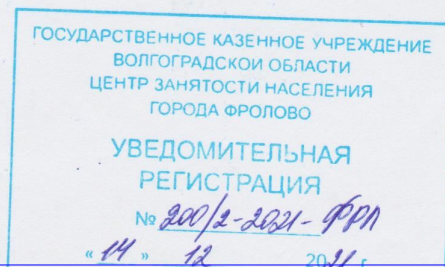 ГОСУДАРСТВЕННОЕ КАЗЕННОЕ УЧРЕЖДЕНИЕ
ВОЛГОГРАДСКОЙ ОБЛАСТИ
ЦЕНТР ЗАНЯТОСТИ НАСЕЛЕНИЯ
ГОРОДА ФРОЛОВО
УВЕДОМИТЕЛЬНАЯ
РЕГИСТРАЦИЯ
№ 200/2-2021-ФРЛ
« 14 » 12 2021 г